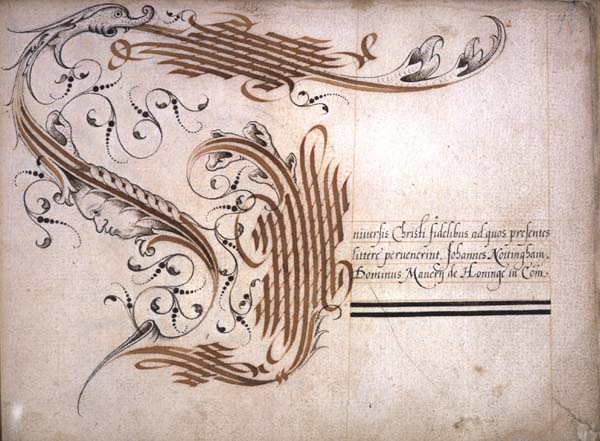 niuersis Christi fidelibus ad quos presentes
littere peruenerint. Johannes Nottingham.
Dominus Manerij de Honinge in Com.